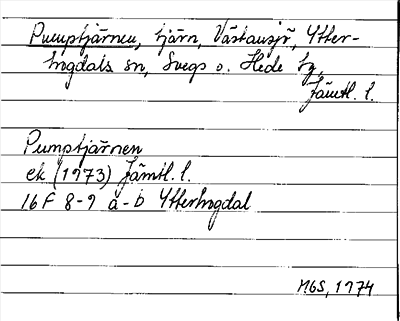 Pumptjärnen, tjärn, Västansjö, Ytter-
hogdals sn, Svegs o. Hede tg,
Jämtl. l.
Pumptjärnen
ek (1973) Jämtl. l.
16 F 8-9 a-b Ytterhogdal
MGS, 1974